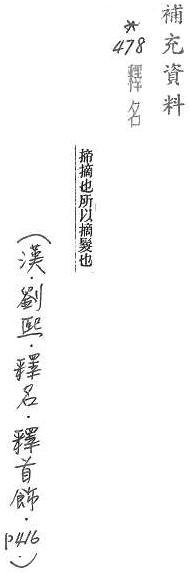 補充資料
*
478 釋名
揥摘也所以摘髮也
(漢·劉熙·釋名·釋首飾·p416·)